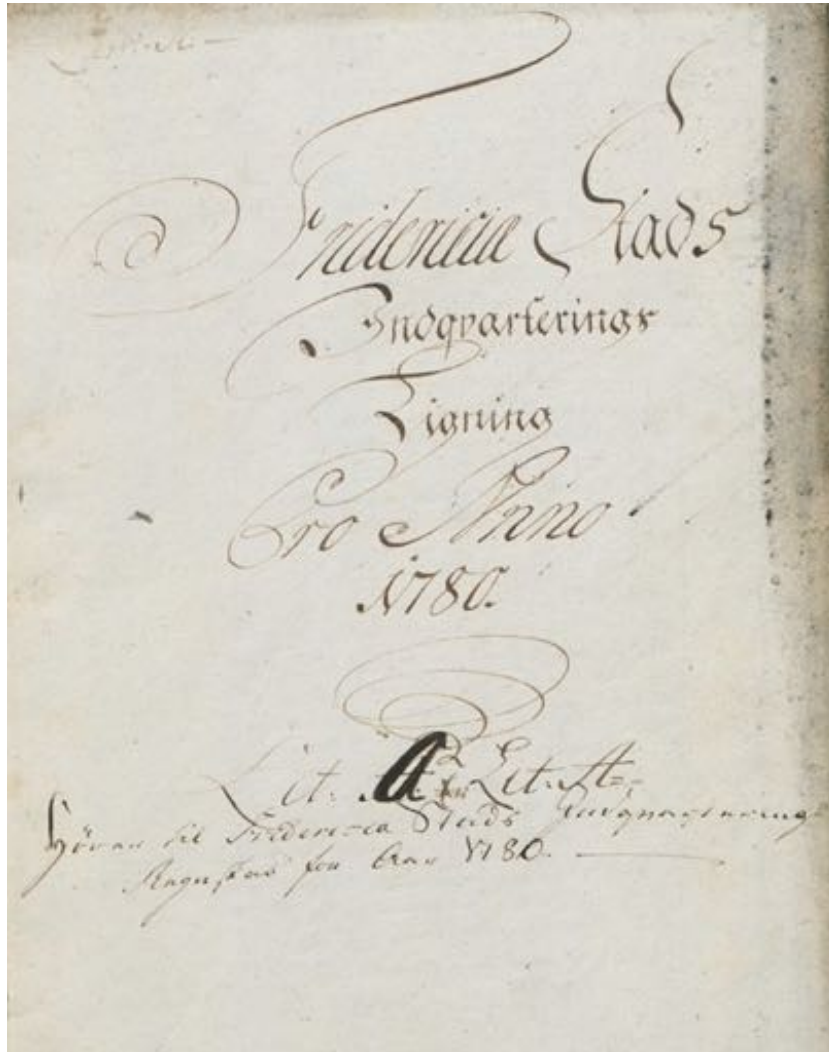 Fridericia Stads
Indqvarterings
Ligning
Pro Anno
1780.
Lit. A Lit. A
Hörer til Fridericia Stads Indqvarterings
Regnskab for Aar 1780.